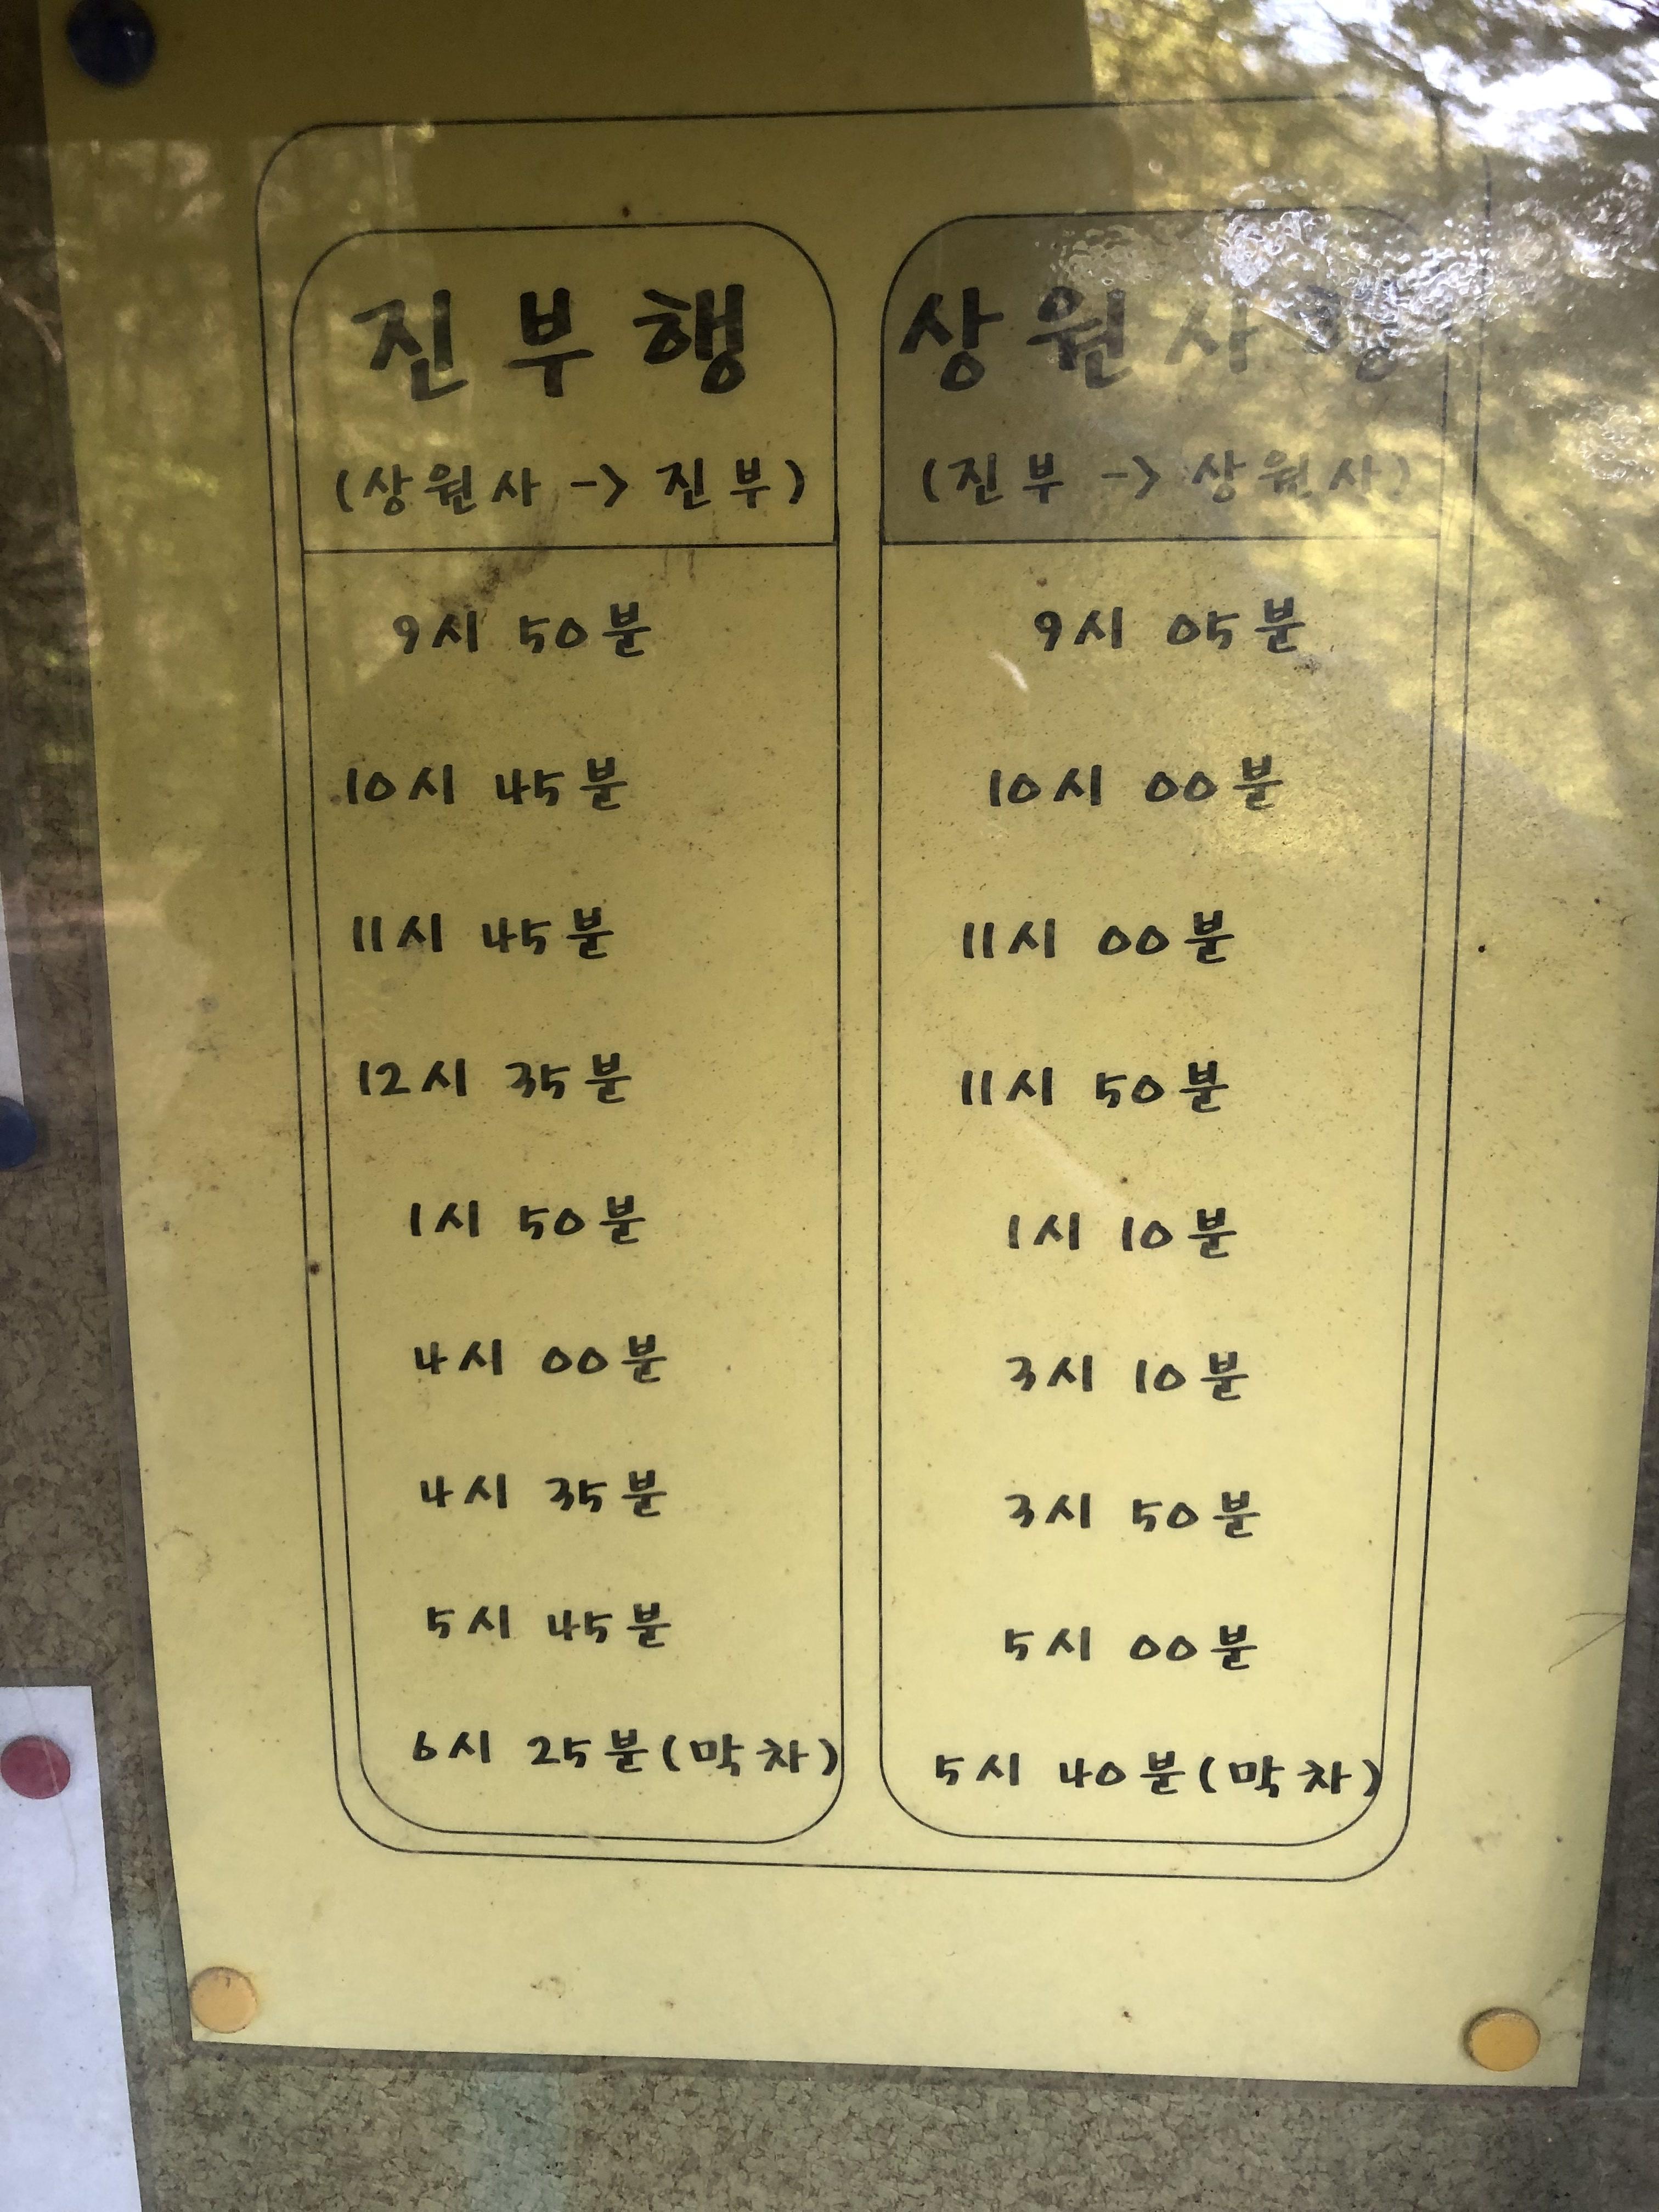 진부행
(상원사 -> 진부)
9시 50분
10시 45분
11시 45분
12시 35분
1시 50분
4시 00분
4시 35분
5시 45분
6시 25분 (막차)
상원사행
(진부 -> 상원사)
9시 05분
10시 00분
11시 00분
11시 50분
1시 10분
3시 10분
3시 50분
5시 00분
5시 40분 (막차)